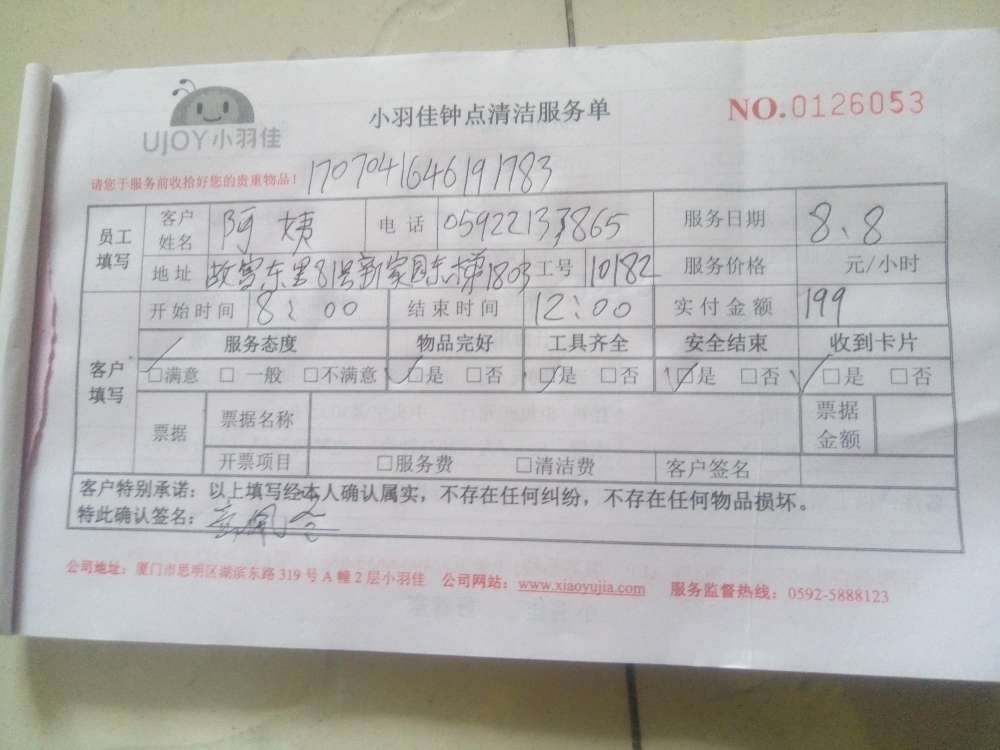 UJOY小羽佳
小羽佳钟点清洁服务单
NO.0126053
请您于服务前收拾好您的贵重物品！ 1707041646191783
员工填写 客户姓名 阿姨 电话 05922133865 服务日期 8、8
地址 故宫东里81号新家园东梯1803 工号 10182 服务价格 元/小时
客户填写 开始时间 8：00 结束时间 12：00 实付金额 199
服务态度 物品完好 工具齐全 安全结束 收到卡片
✓□满意 □一般 □不满意 ✓□是 □否 ✓□是 □否 ✓□是 □否 ✓□是 □否
票据 票据名称 票据金额
开票项目 □服务费 □清洁费 客户签名
客户特别承诺：以上填写经本人确认属实，不存在任何纠纷，不存在任何物品损坏。
特此确认签名：
公司地址：厦门市思明区湖滨东路 319 号 A 幢 2 层小羽佳 公司网站：www.xiaoyujia.com 服务监督热线：0592-5888123